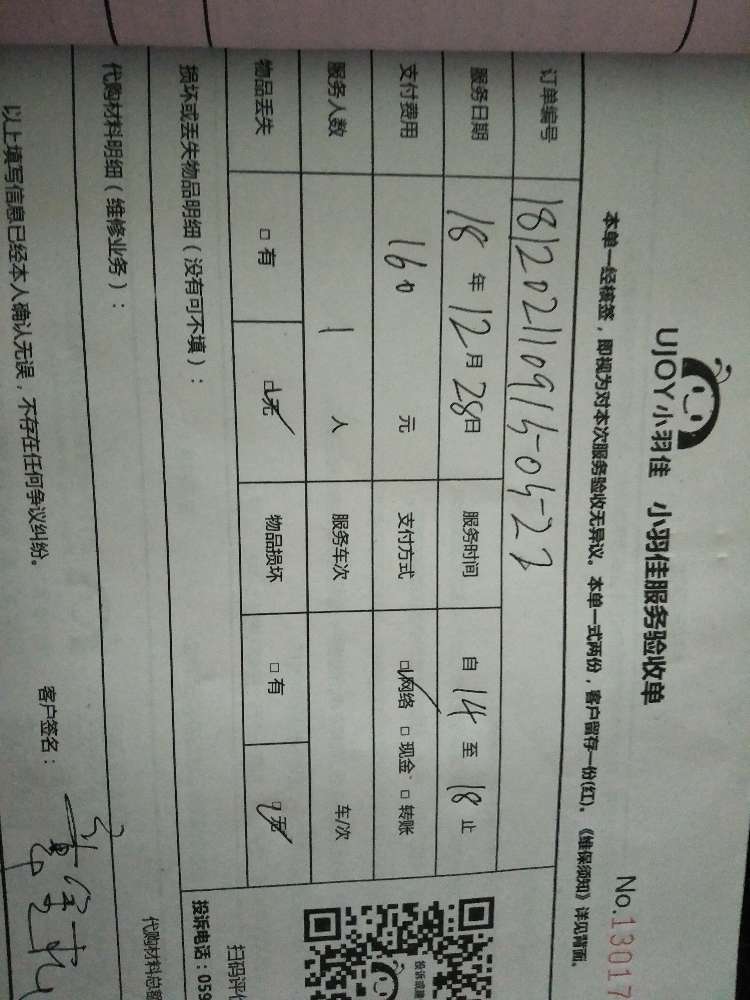 UJOY小羽佳 小羽佳服务验收单
No.13017
本单一经核签，即视为对本次服务验收无异议。本单一式两份，客户留存一份(红)。《维保须知》详见背面。
订单编号
服务日期 18 年 12 月 28 日 服务时间 自 14 至 18 止
支付费用 160 元 支付方式 网络 现金 转账
服务人数 1 人 服务车次 车/次
物品丢失 有 无 物品损坏 有 无
损坏或丢失物品明细（没有可不填）：
代购材料明细（维修业务）：
以上填写信息已经本人确认无误，不存在任何争议纠纷。
客户签名：
投诉电话：059
代购材料总额